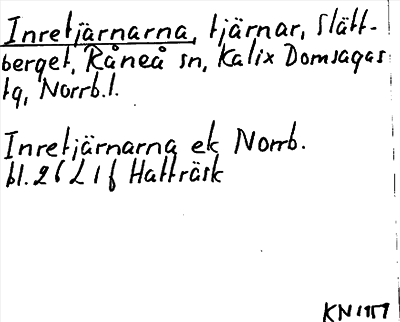 Inretjärnarna, tjärnar, Slätt-
berget, Råneå sn, Kalix Domsagas
tg, Norrb.l.
Inretjärnarna ek Norrb.
bl. 26 L 1 f Hatträsk